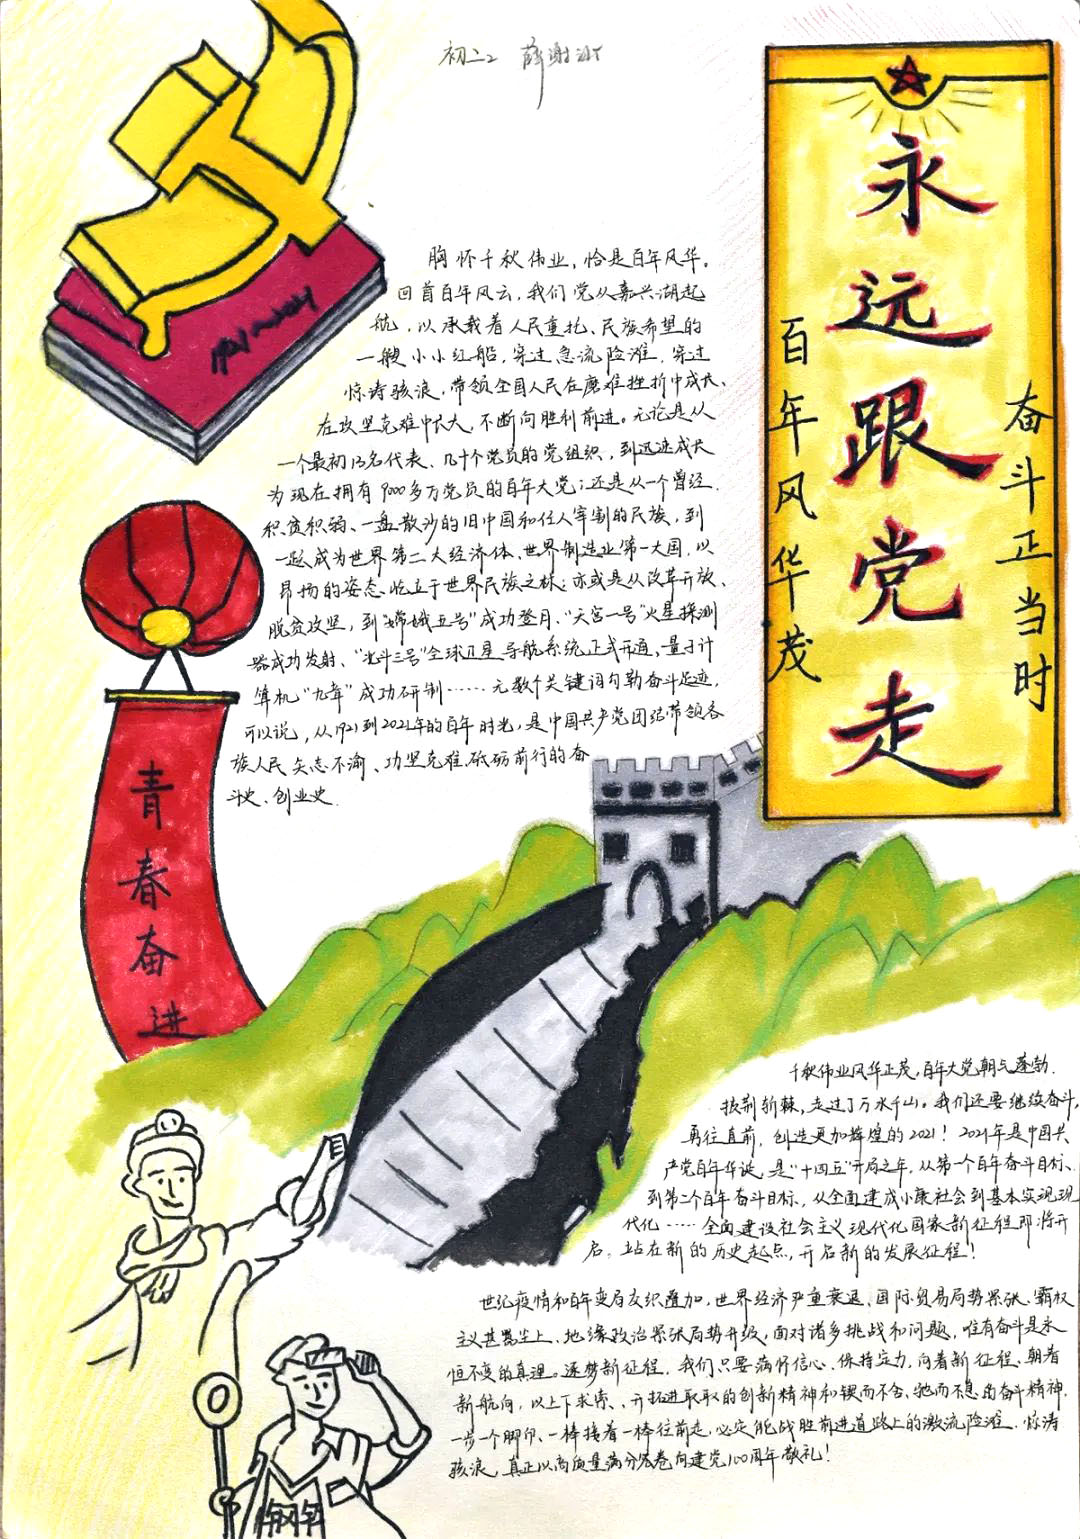 初二2 薛谢
永远跟党走
百年风华茂
奋斗正当时
胸怀千秋伟业，恰是百年风华。
回首百年风云，我们党从嘉兴湖起
航，以承载着人民重托、民族希望的
一艘小小红船，穿过急流险滩，穿过
惊涛骇浪，带领全国人民在磨难挫折中成长、
在攻坚克难中长大，不断向胜利前进。无论是从
一个最初13名代表、几十个党员的党组织，到迅速成长
为现在拥有9000多万党员的百年大党；还是从一个曾经
积贫积弱、一盘散沙的旧中国和任人宰割的民族，到
一跃成为世界第二大经济体、世界制造业第一大国，以
昂扬的姿态屹立于世界民族之林；亦或是从改革开放、
脱贫攻坚，到“嫦娥五号”成功登月、“天宫一号”火星探测
器成功发射、“北斗三号”全球卫星导航系统正式开通，量子计
算机“九章”成功研制……无数个关键词勾勒奋斗足迹，
可以说，从1921到2021年的百年时光，是中国共产党团结带领各
族人民矢志不渝、功坚克难、砥砺前行的奋
斗史、创业史。
青春奋进
千秋伟业风华正茂，百年大党朝气蓬勃。
披荆斩棘，走过了万水千山。我们还要继续奋斗，
勇往直前，创造更加辉煌的2021！2021年是中国共
产党百年华诞，是“十四五”开局之年，从第一个百年奋斗目标，
到第二个百年奋斗目标，从全面建成小康社会到基本实现现
代化……全面建设社会主义现代化国家新征程即将开
启，站在新的历史起点，开启新的发展征程！
世纪疫情和百年变局交织叠加，世界经济严重衰退、国际贸易局势紧张、霸权
主义甚嚣尘上、地缘政治紧张局势升级，面对诸多挑战和问题，唯有奋斗是永
恒不变的真理。逐梦新征程，我们只要满怀信心、保持定力，向着新征程、朝着
新航向，以上下求索、开拓进取的创新精神和锲而不舍、驰而不息的奋斗精神，
一步一个脚印、一棒接着一棒往前走，必定能战胜前进道路上的激流险滩、惊涛
骇浪，真正以高质量满分答卷向建党100周年敬礼！